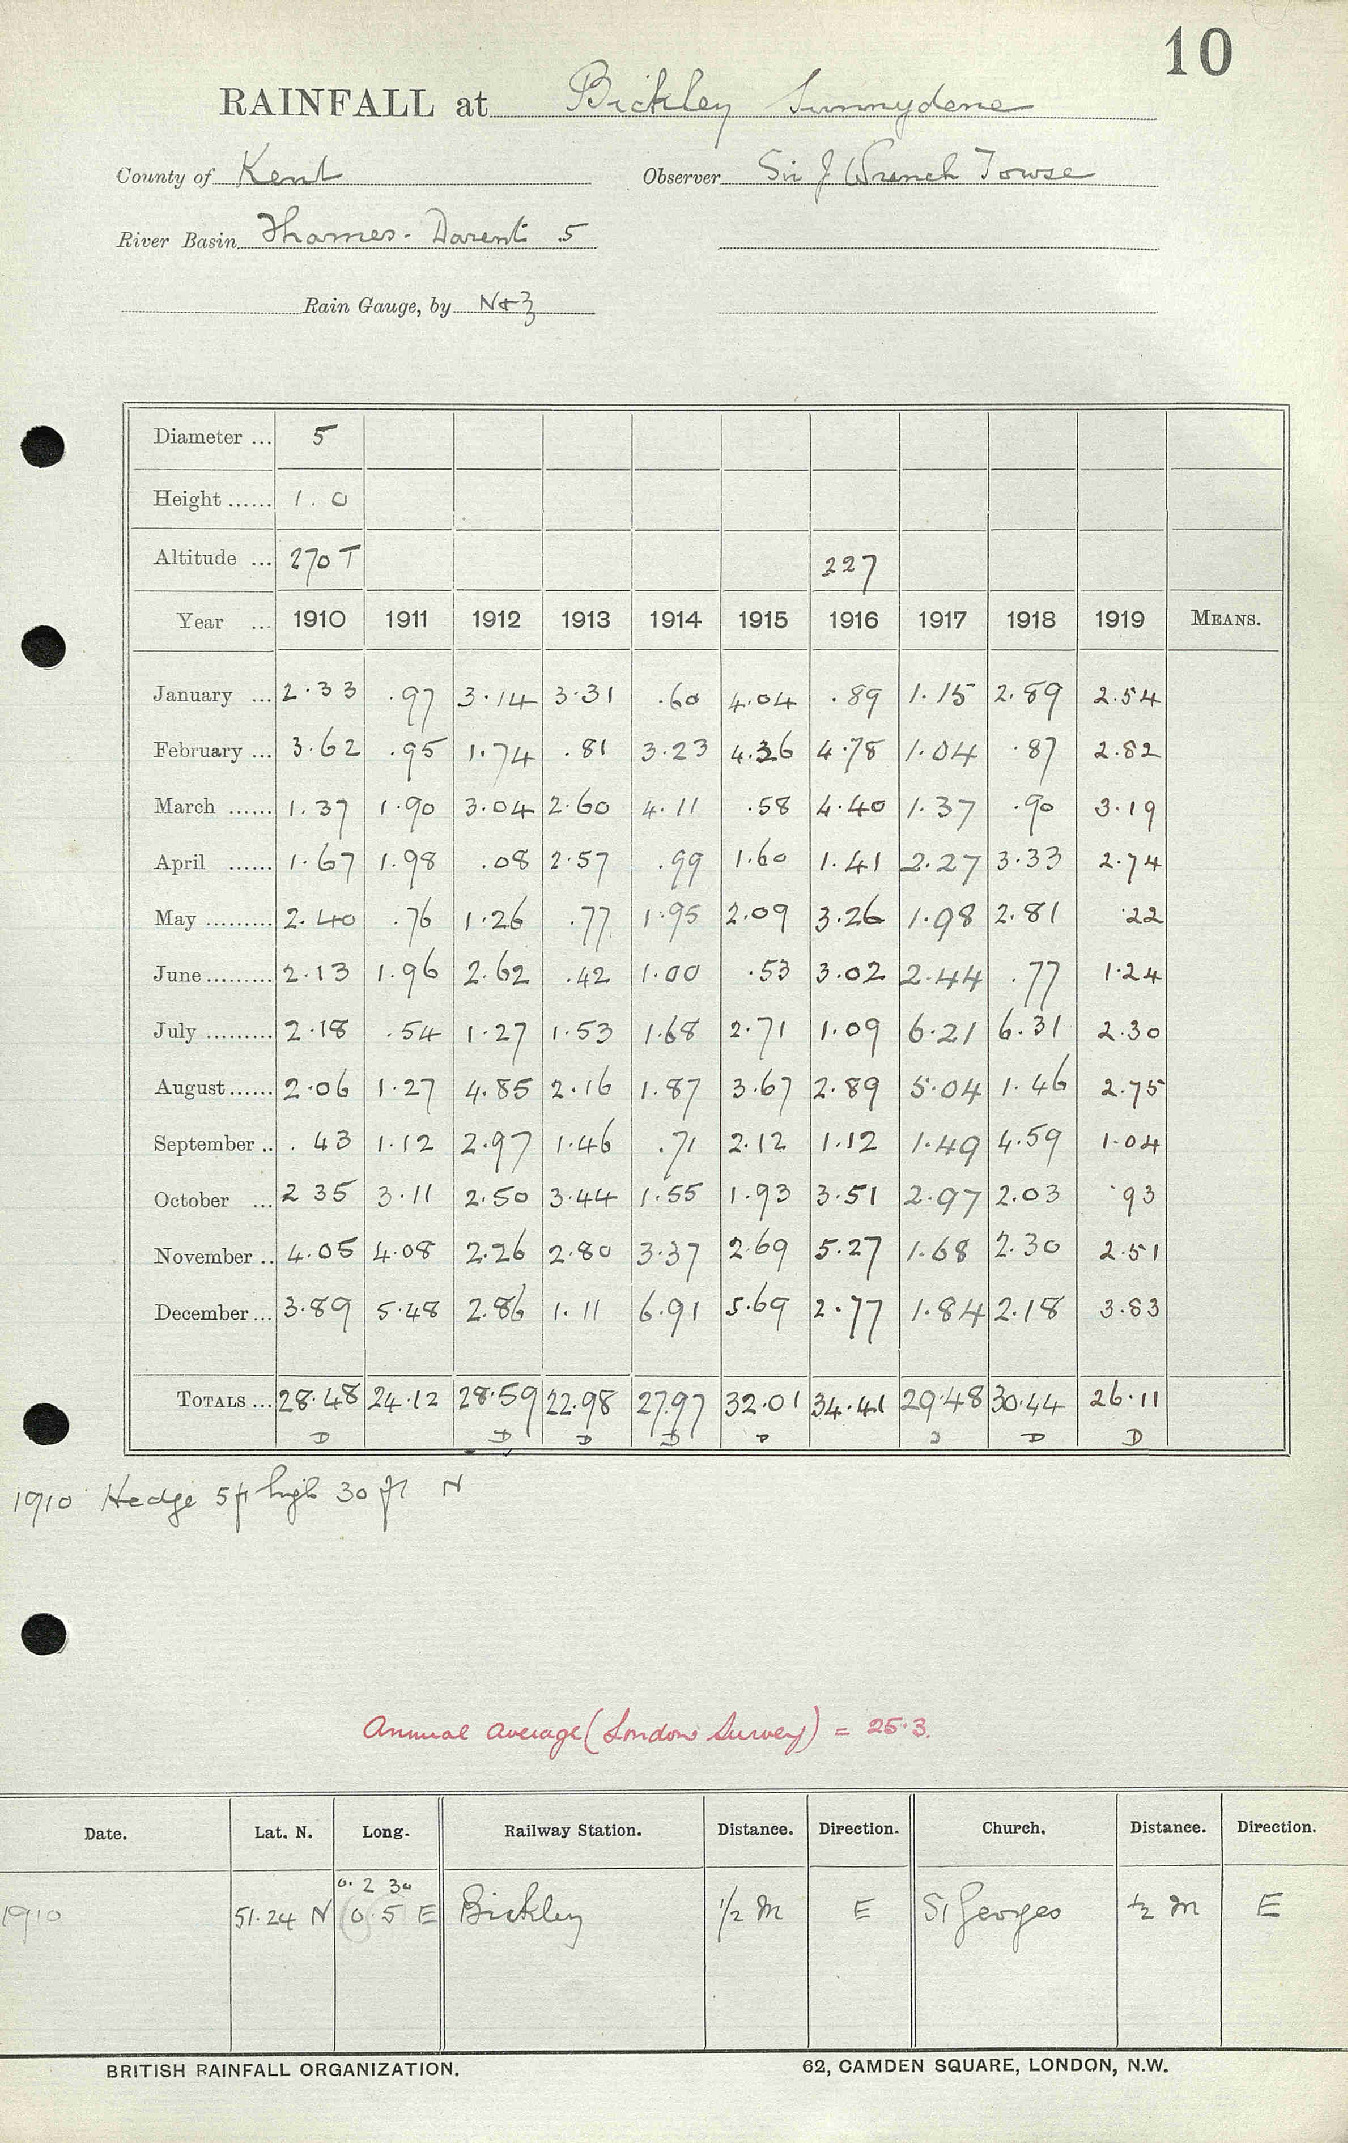 10
RAINFALL at Bickley Sunnydene
County of Kent Observer Sir J Wrench Towse
River Basin Thames. Darent 5
Rain Gauge, by N+Z
Diameter ... 5
Height ...... 1.0
Altitude ... 270 T 227
Year ... 1910 1911 1912 1913 1914 1915 1916 1917 1918 1919 MEANS.
January ... 2.33 .97 3.14 3.31 .60 4.04 .89 1.15 2.89 2.54
February ... 3.62 .95 1.74 .81 3.23 4.36 4.78 1.04 .87 2.82
March ...... 1.37 1.90 3.04 2.60 4.11 .58 4.40 1.37 .90 3.19
April ...... 1.67 1.98 .08 2.57 .99 1.60 1.41 2.27 3.33 2.74
May ......... 2.40 .76 1.26 .77 1.95 2.09 3.26 1.98 2.81 .22
June ......... 2.13 1.96 2.62 .42 1.00 .53 3.02 2.44 .77 1.24
July ......... 2.18 .54 1.27 1.53 1.68 2.71 1.09 6.21 6.31 2.30
August ...... 2.06 1.27 4.85 2.16 1.87 3.67 2.89 5.04 1.46 2.75
September .. .43 1.12 2.97 1.46 .71 2.12 1.12 1.49 4.59 1.04
October ... 2 35 3.11 2.50 3.44 1.55 1.93 3.51 2.97 2.03 .93
November .. 4.05 4.08 2.26 2.80 3.37 2.69 5.27 1.68 2.30 2.51
December ... 3.89 5.48 2.86 1.11 6.91 5.69 2.77 1.84 2.18 3.83
TOTALS ... 28.48 24.12 28.59 22.98 27.97 32.01 34.41 29.48 30.44 26.11
D D D D D D D D
1910 Hedge 5ft high 30 ft N
Annual average (London Survey) = 25.3.
Date. Lat. N. Long. Railway Station. Distance. Direction. Church. Distance. Direction.
0. 2 30
1910 51.24 N 0.5 E Bickley 1/2 M E St Georges 1/2 M E
BRITISH RAINFALL ORGANIZATION. 62, CAMDEN SQUARE, LONDON, N.W.